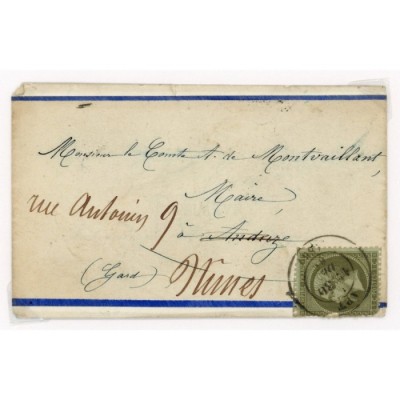 Monsieur le Comte A. de Montvaillant,
Maire,
rue Antonin 9
à Anduze
(Gard) Nîmes